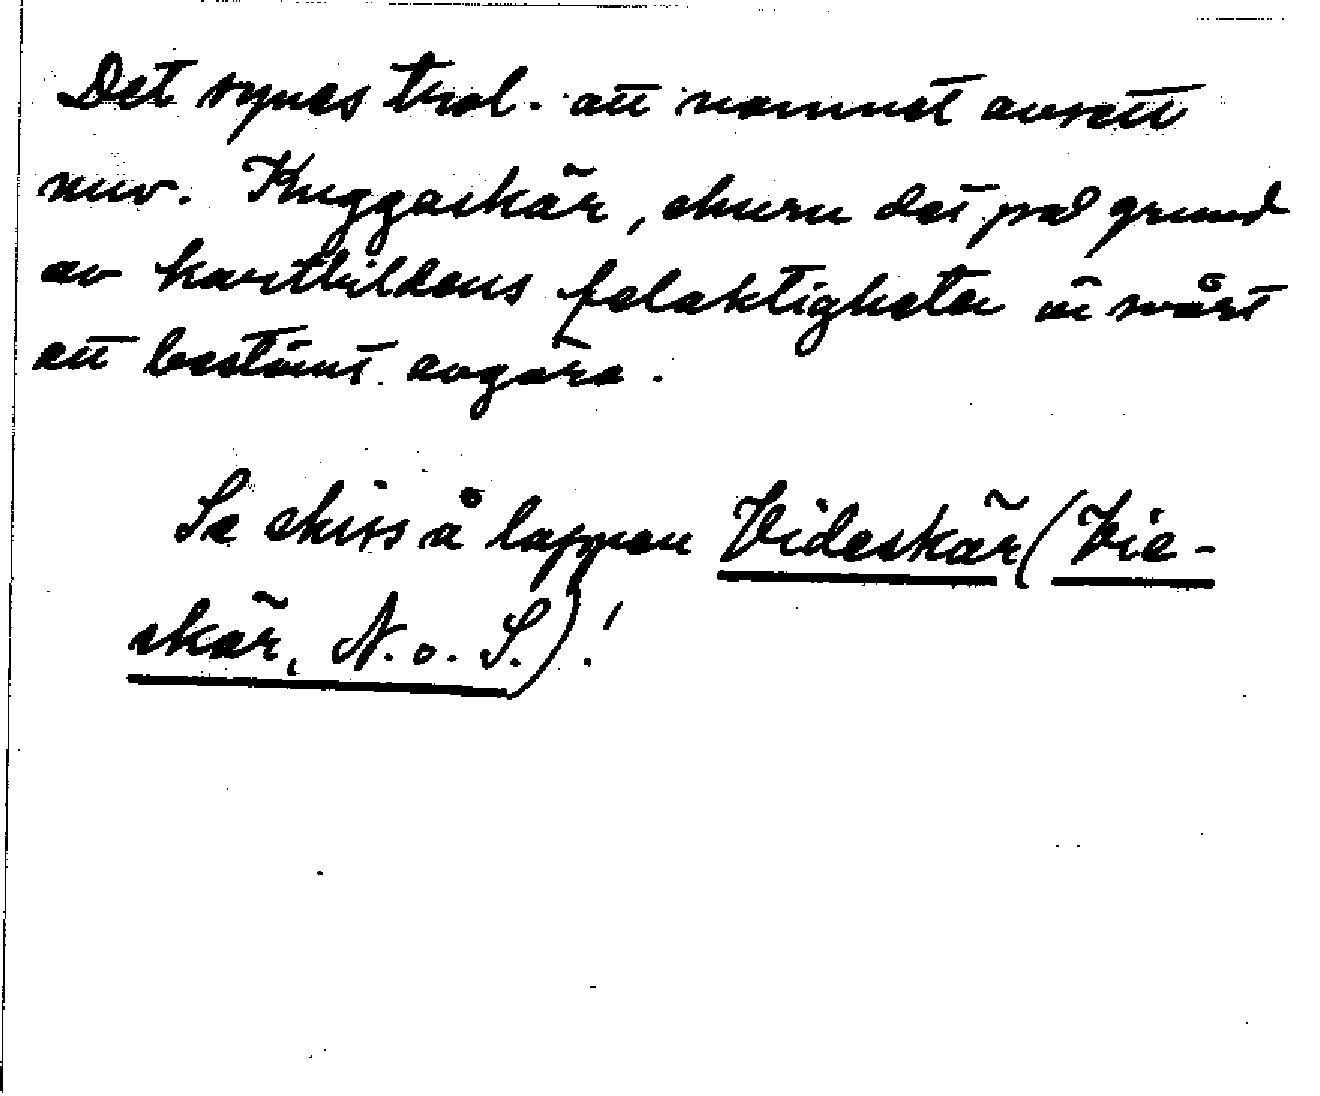 Det synes trol. att namnet avsett
nuv. Kuggaskär, ehuru det på grund
av kartbildens felaktigheter är svårt
att bestämt avgöra.
Se skiss å lappen Videskär (Vie-
skär, N. o. S.)!